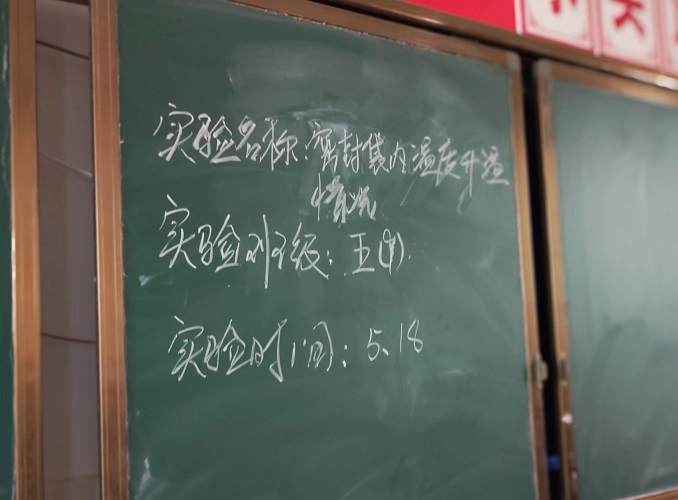 实验名称：密封袋内温度升温
情况
实验班级：五(9).
实验时间：5.18